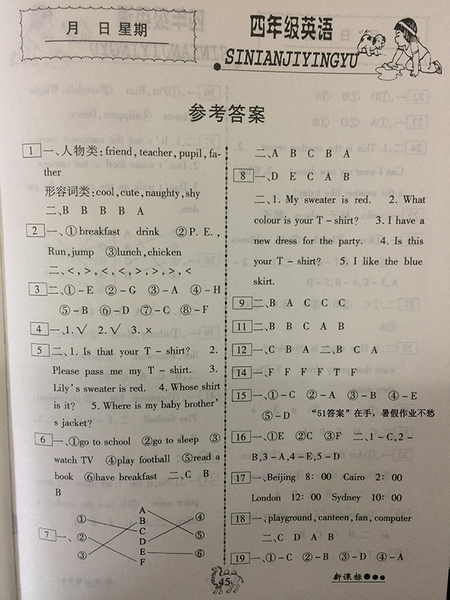 月 日 星期
四年级英语
SINIANJIYINGYU
参考答案
1 一、人物类:friend,teacher,pupil,fa-
ther
形容词类:cool,cute,naughty,shy
二、B B B B A
2 一、①breakfast drink ②P.E.,
Run,jump ③lunch,chicken
二、<,>,<,<,>,>,>,<
3 二、①-E ②-G ③-A ④-H
⑤-B ⑥-D ⑦-C ⑧-F
4 一、1.√ 2.√ 3.×
5 二、1. Is that your T-shirt? 2.
Please pass me my T-shirt. 3.
Lily's sweater is red. 4. Whose shirt
is it? 5. Where is my baby brother'
s jacket?
6 一、①go to school ②go to sleep ③
watch TV ④play football ⑤read a
book ⑥have breakfast 二、C B
B
7 一、
① A ④
② B
C
D ⑤
③ E ⑥
F
二、A B C B A
8 一、D E C A B
二、1. My sweater is red. 2. What
colour is your T-shirt? 3. I have a
new dress for the party. 4. Is this
your T-shirt? 5. I like the blue
skirt.
9 二、B A C C C
11 二、B B C A B
12 一、C B A 二、B C A
14 一、F F F F T F
15 一、①-C ②-A ③-B ④-E
⑤-D "51答案"在手,暑假作业不愁
16 一、①E ②C ③F 二、1-C,2-
B,3-A,4-E,5-D
17 一、Beijing 8:00 Cairo 2:00
London 12:00 Sydney 10:00
18 一、playground,canteen,fan,computer
二、C D A B
19 一、①-C ②-B ③-D ④-A
45
新课标